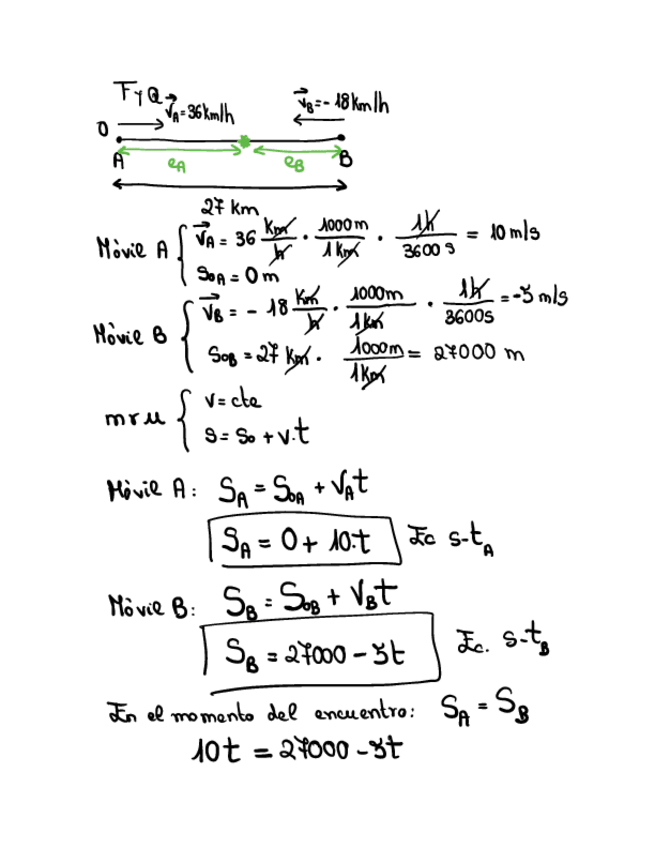 FyQ
v⃗A = 36 km/h
v⃗B = - 18 Km/h
O
A
eA
eB
B
27 Km
Mòvil A { v⃗A = 36 Km/h · 1000 m/1 Km · 1h/3600 s = 10 m/s
SoA = 0 m
Mòvil B { v⃗B = - 18 Km/h · 1000m/1Km · 1h/3600s = -5 m/s
SoB = 27 Km · 1000m/1Km = 27000 m
mru { v = cte
s = so + v.t
Mòvil A: SA = SoA + vAt
SA = 0 + 10·t Ec s-tA
Mòvil B: SB = SoB + VBt
SB = 27000 - 5t Ec. s-tB
En el momento del encuentro: SA = SB
10t = 27000 - 5t